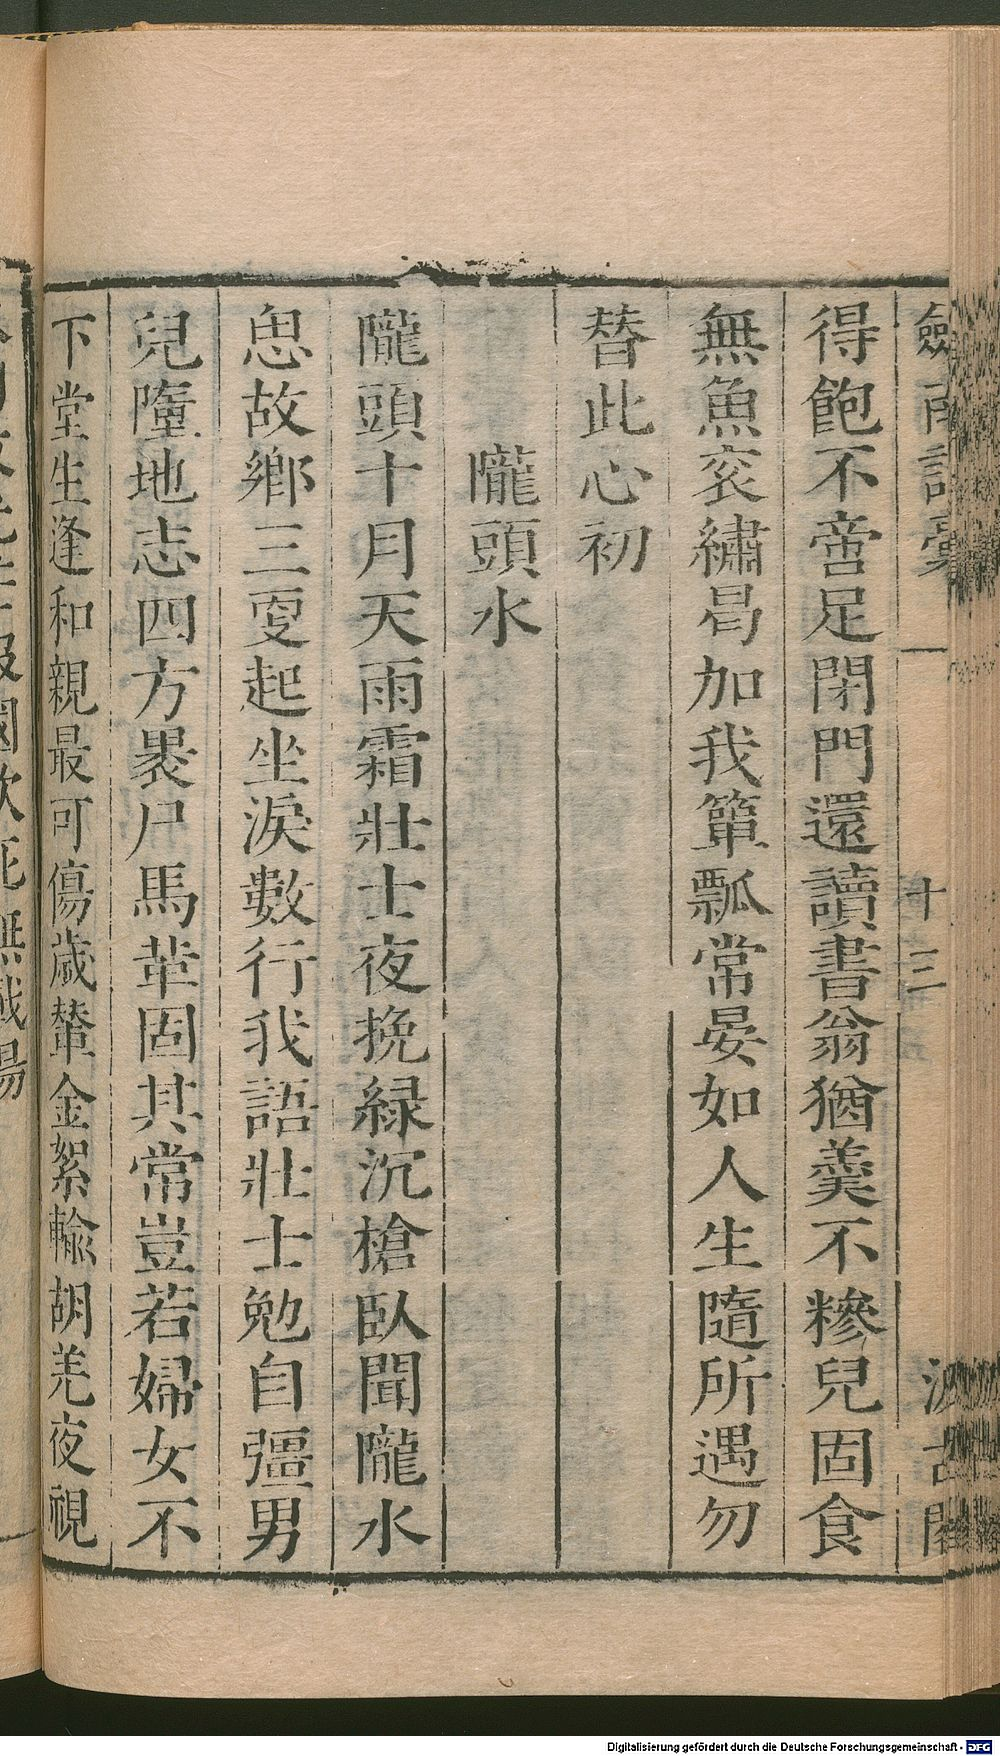 劔南詩稾 一 十三 汲古閣
得飽不啻足閉門還讀書翁猶羹不糝兒固食
無魚衮繡曷加我簞瓢常晏如人生隨所遇勿
替此心初
隴頭水
隴頭十月天雨霜壯士夜挽綠沉槍臥聞隴水
思故鄉三更起坐淚數行我語壯士勉自彊男
兒墮地志四方裹尸馬革固其常豈若婦女不
下堂生逢和親最可傷歲輦金絮輸胡羌夜視
Digitalisierung gefördert durch die Deutsche Forschungsgemeinschaft - DFG